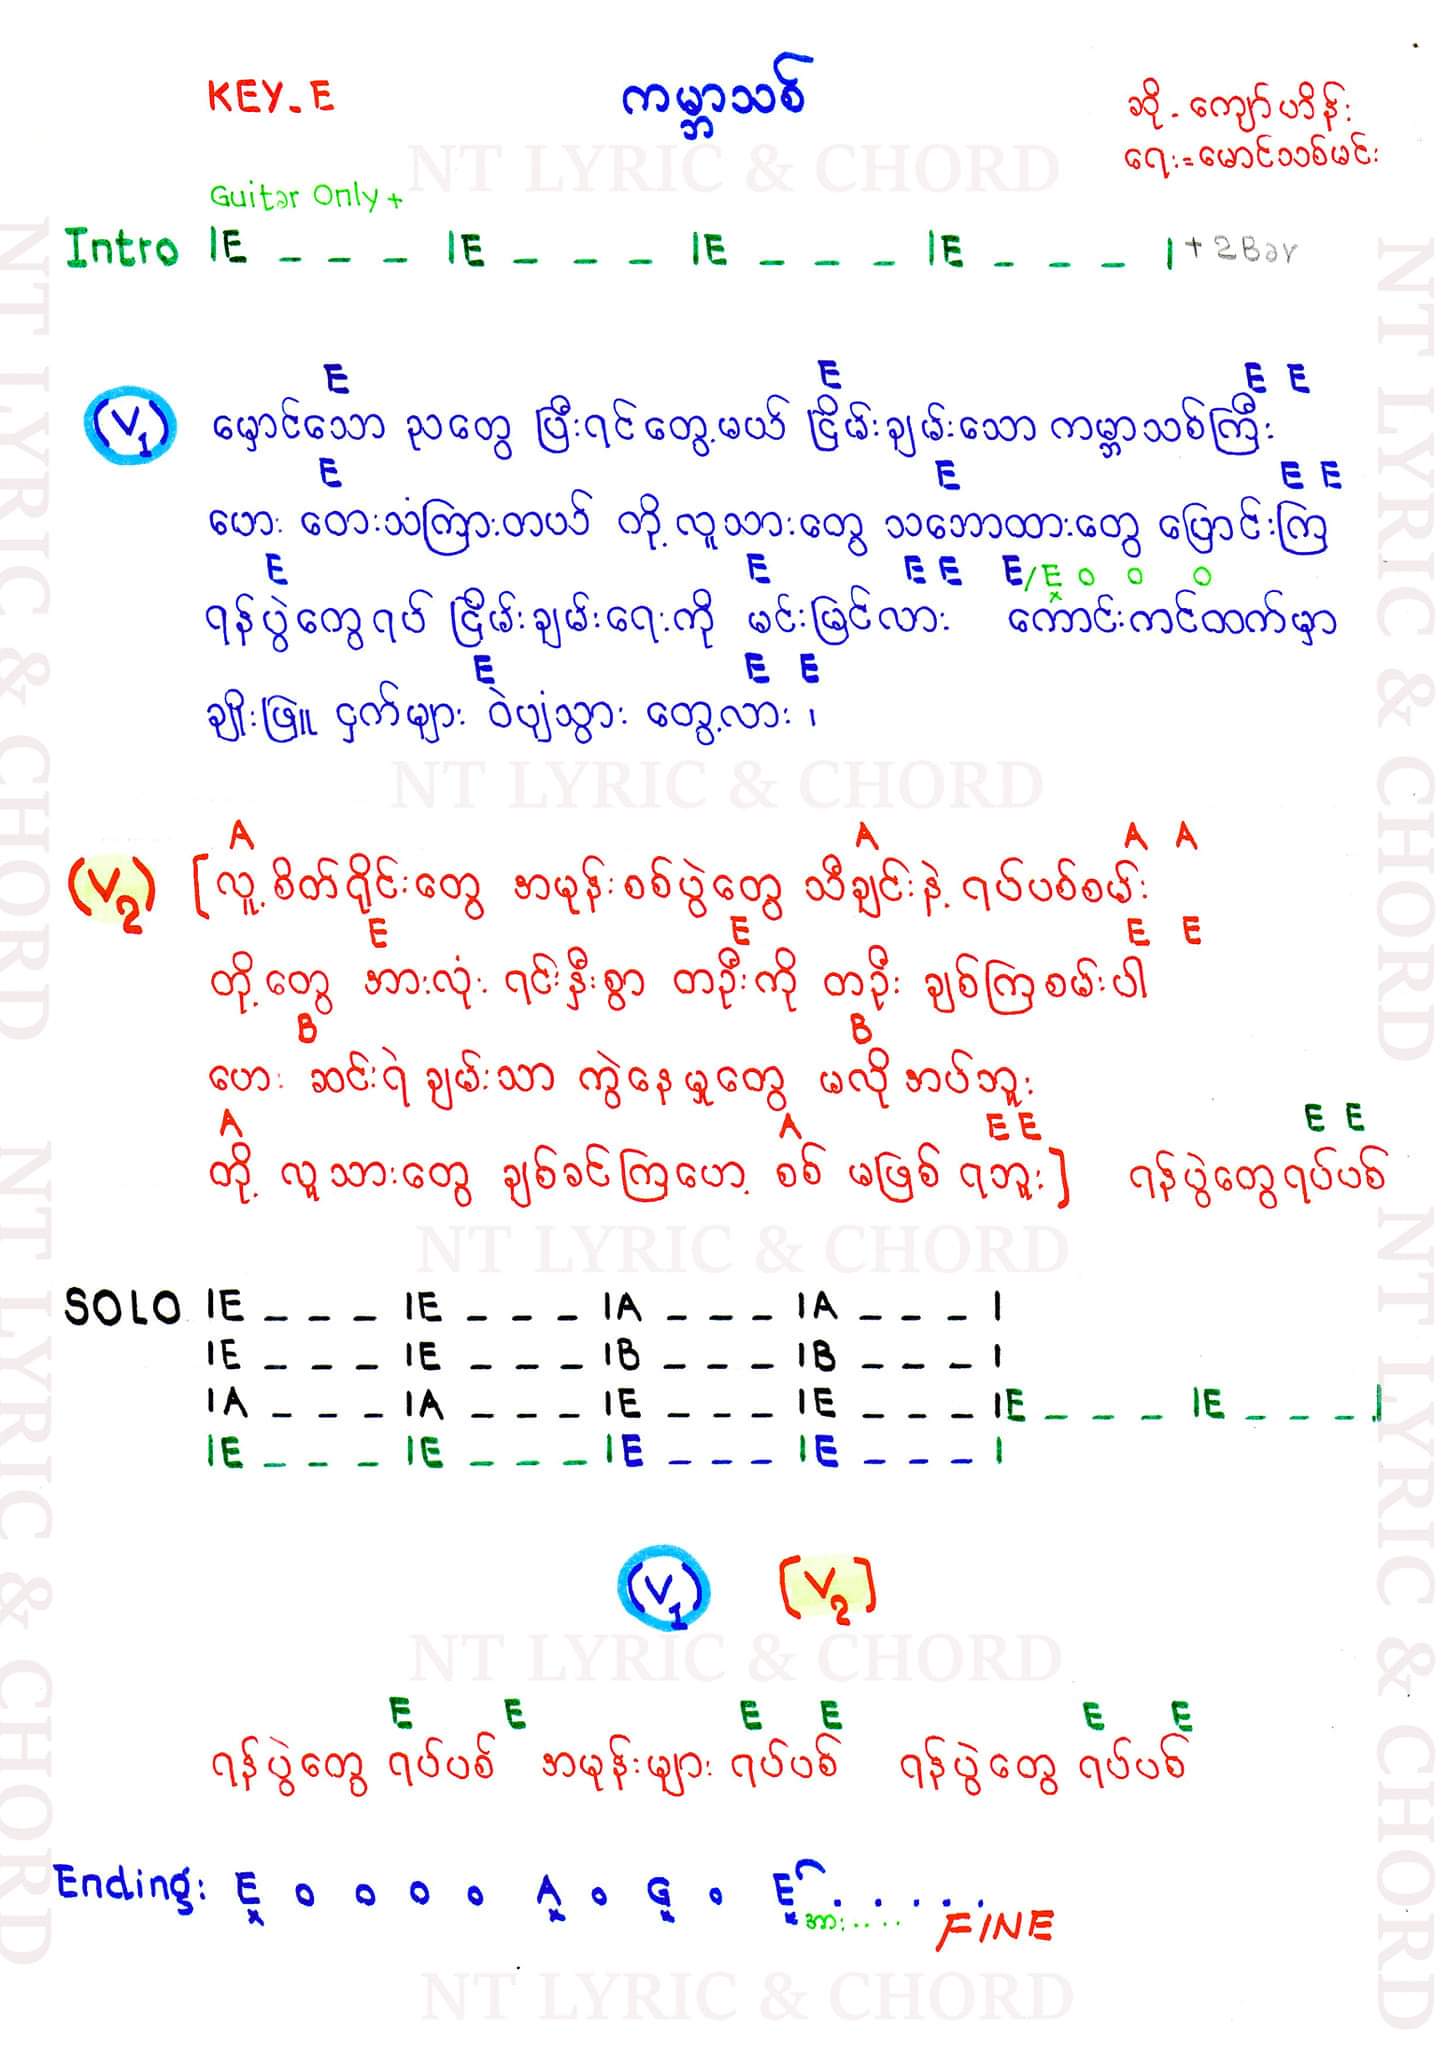 KEY - E
ကမ္ဘာသစ်
ဆို - ကျော်ဟိန်း
ရေး = မောင်သစ်မင်း
NT LYRIC & CHORD
Guitar Only +
Intro |E _ _ _ |E _ _ _ |E _ _ _ |E _ _ _ | + 2Bar
E E E E
(V1) မှောင်သော ညတွေ ပြီးရင် တွေ့မယ် ငြိမ်းချမ်းသော ကမ္ဘာသစ်ကြီး
E E E E
ဟေး တေးသံကြားတယ် တို့လူသားတွေ သဘောထားတွေ ပြောင်းကြ
E E E E E/E o o o
ရန်ပွဲတွေရပ် ငြိမ်းချမ်းရေးကို မင်းမြင်လား ကောင်းကင်ထက်မှာ
E E E
ချိုးဖြူ ငှက်များ ဝဲပျံသွား တွေ့လား ၊
NT LYRIC & CHORD
A A A A
(V2) [လူ့စိတ်ရိုင်းတွေ အမုန်းစစ်ပွဲတွေ သီချင်းနဲ့ ရပ်ပစ်စမ်း
E E E E
တို့တွေ အားလုံး ရင်းနှီးစွာ တဦးကို တဦး ချစ်ကြစမ်းပါ
B B
ဟေး ဆင်းရဲ ချမ်းသာ ကွဲနေမှုတွေ မလိုအပ်ဘူး
A A E E E E
တို့ လူသားတွေ ချစ်ခင်ကြဟေ့ စစ် မဖြစ် ရဘူး] ရန်ပွဲတွေရပ်ပစ်
NT LYRIC & CHORD
SOLO |E _ _ _ |E _ _ _ |A _ _ _ |A _ _ _ |
|E _ _ _ |E _ _ _ |B _ _ _ |B _ _ _ |
|A _ _ _ |A _ _ _ |E _ _ _ |E _ _ _ |E _ _ _ |E _ _ _ |
|E _ _ _ |E _ _ _ |E _ _ _ |E _ _ _ |
(V1) [V2]
NT LYRIC & CHORD
E E E E E E
ရန်ပွဲတွေ ရပ်ပစ် အမုန်းများ ရပ်ပစ် ရန်ပွဲတွေ ရပ်ပစ်
Ending: E o o o o A o G o E . . . . . .
အား . . . . FINE
NT LYRIC & CHORD
NT LYRIC & CHORD NT LYRIC & CHORD
NT LYRIC & CHORD NT LYRIC & CHORD